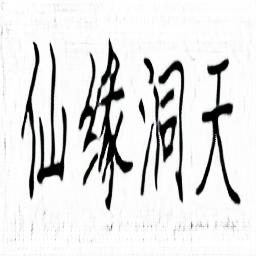 仙缘洞天